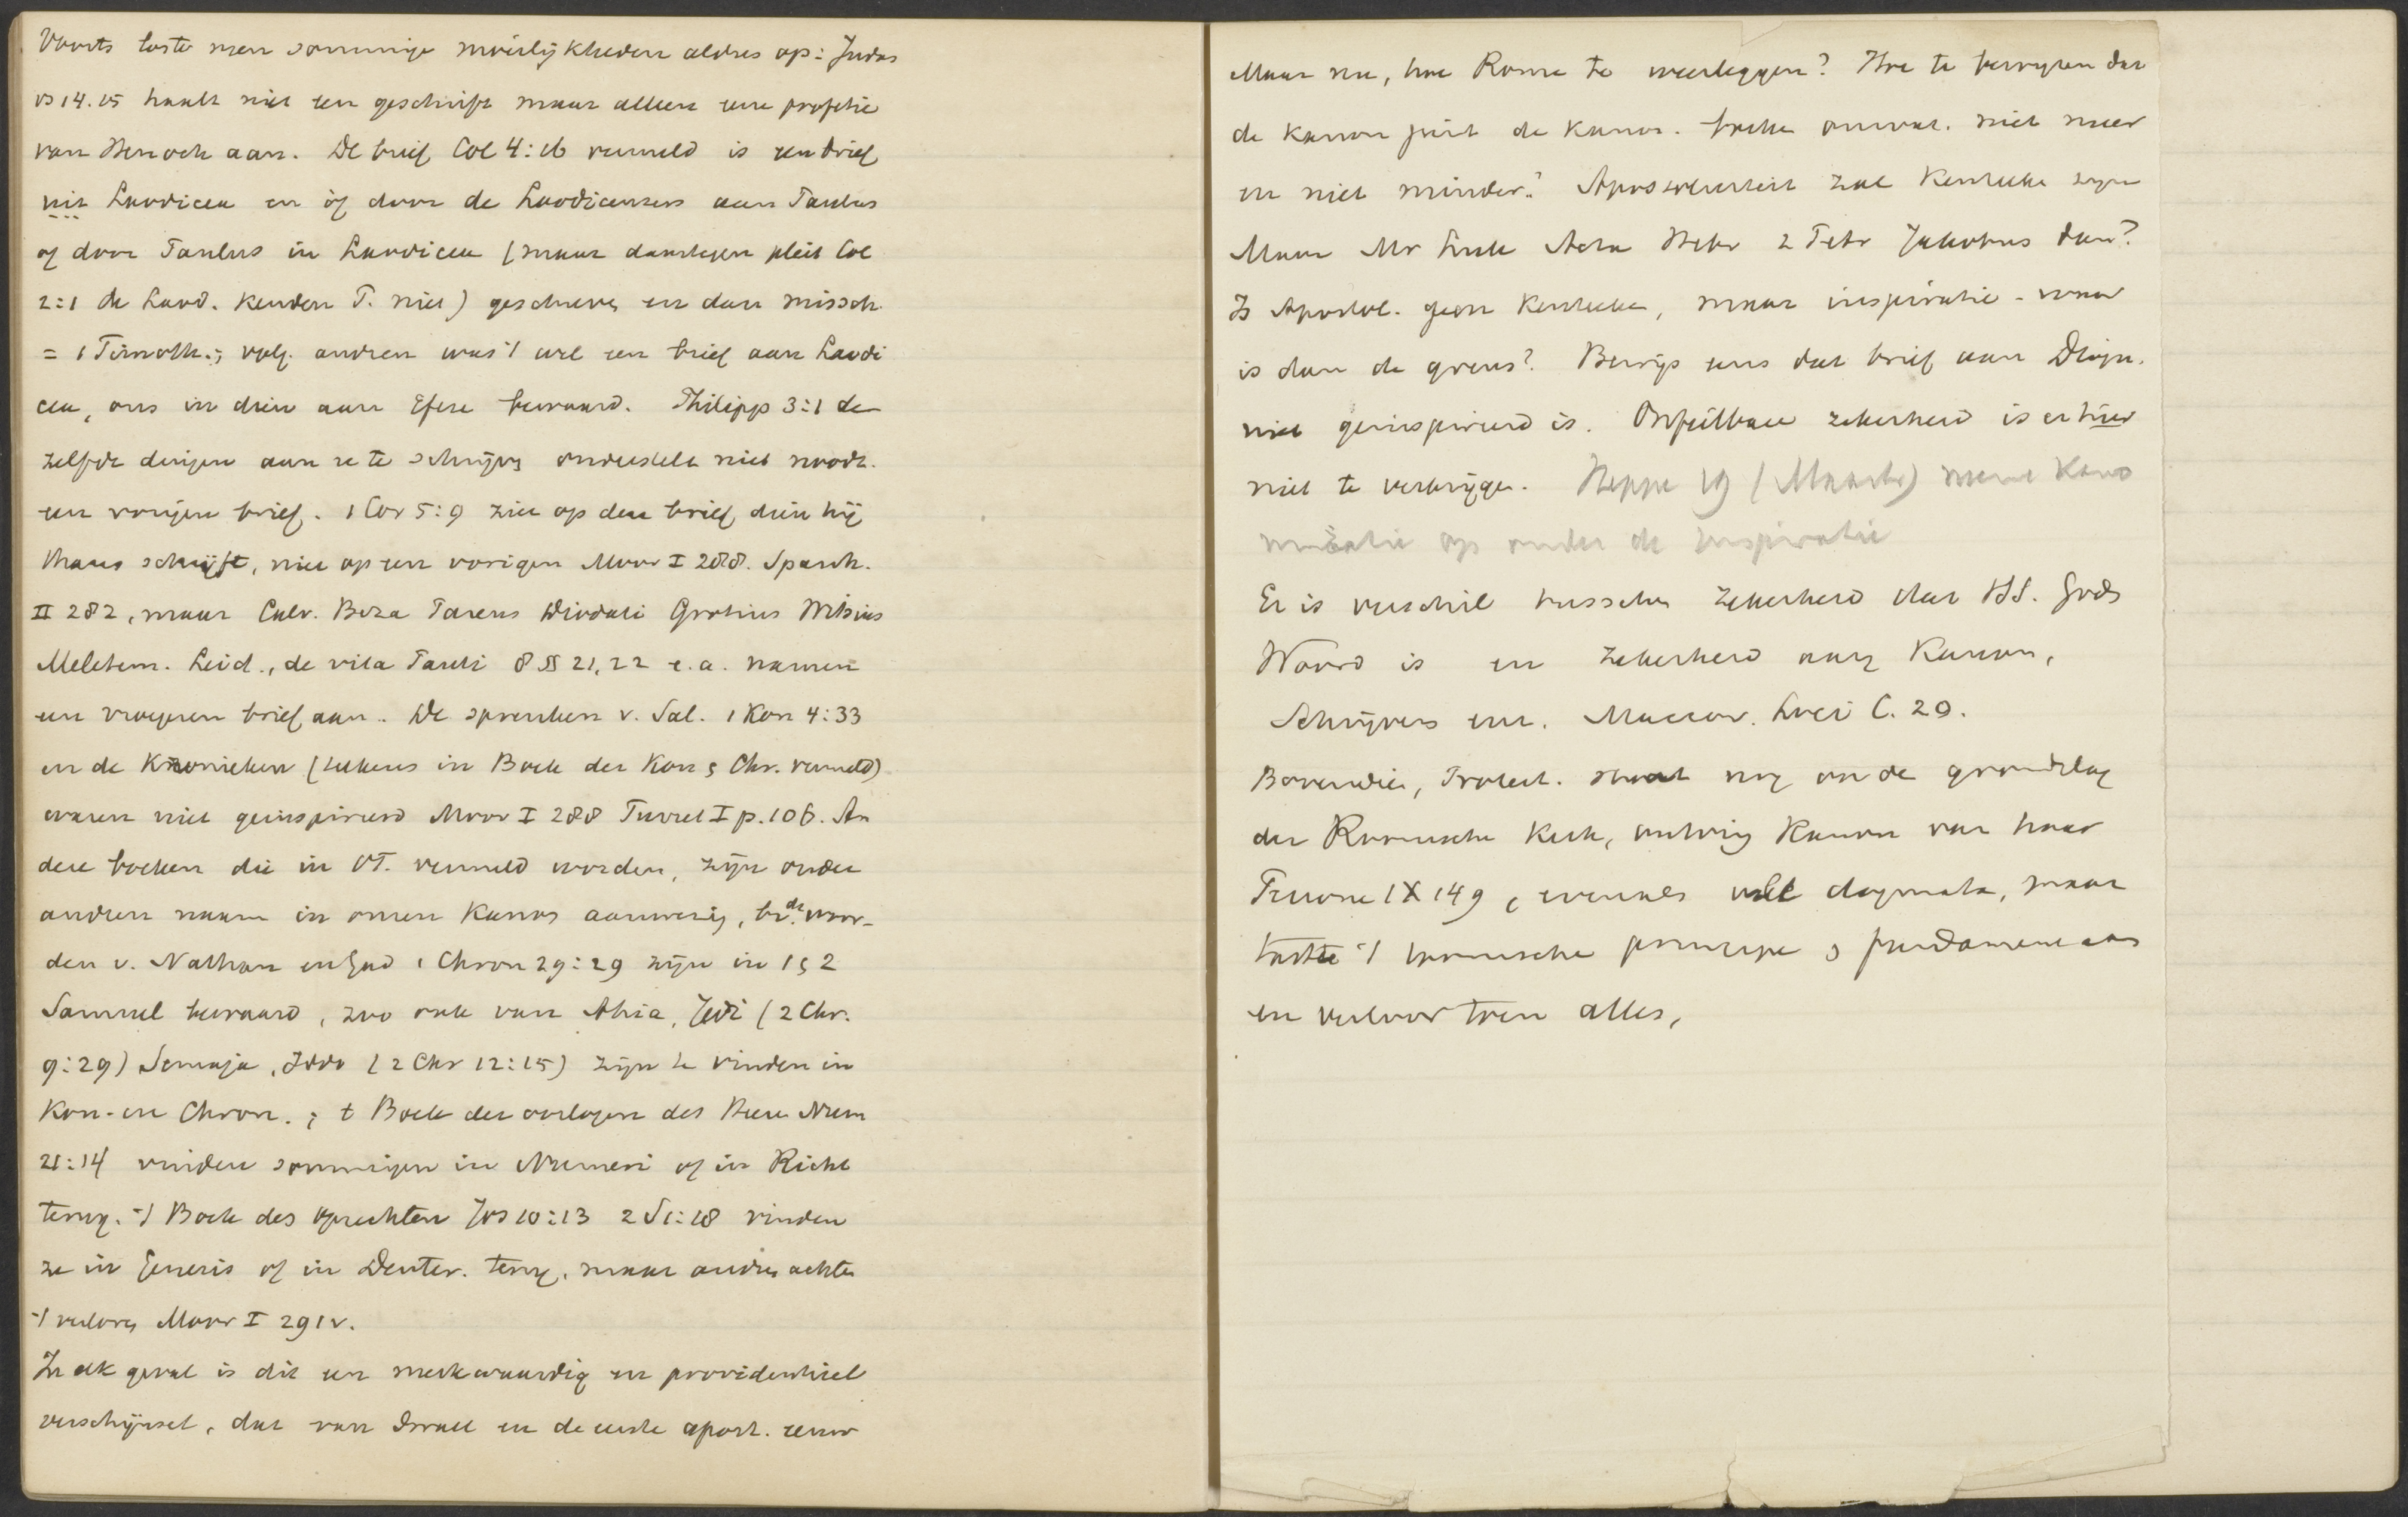 Voorts loste men sommige moeilijkheden aldus op: Judas
vs 14.15 haalt niet een geschrift maar alleen eene profetie
van Henoch aan. De brief Col 4:16 vermeld is een brief
uit Laodicea en òf door de Laodicensers aan Paulus
of door Paulus in Laodicea (maar daartegen pleit Col
2:1 de Laod. kenden P. niet) geschreven en dan missch.
= 1 Timoth.; volg. andren was 't wel een brief aan Laodi
cea, ons in dien aan Efeze bewaard. Philipp 3:1 de
zelfde dingen aan u te schrijven onderstelt niet noodz.
een vorigen brief. 1 Cor 5:9 ziet op den brief dien hij
thans schrijft, niet op een vorigen Moor I 288. Spanh.
II 282, maar Calv. Beza Pareus Diodati Grotius Witsius
Meletem. Leid., de vita Pauli 8 §§ 21, 22 e.a. namen
een vroegeren brief aan. De spreuken v. Sal. 1 Kon 4:33
en de Kronieken (telkens in Boek der Kon & Chr. vermeld)
waren niet geinspireerd Moor I 288 Turret I p. 106. An
dere boeken die in OT. vermeld worden, zijn onder
andren naam in onzen Kanon aanwezig, bv. de woor-
den v. Nathan en Gad 1 Chron 29:29 zijn in 1 & 2
Samuel bewaard, zoo ook van Ahia, Jedi (2 Chr.
9:29) Semaja, Iddo (2 Chr 12:15) zijn te vinden in
Kon. en Chron.; t Boek der oorlogen des Heeren Num
21:14 vinden sommigen in Numeri of in Richt
terug. 't Boek des oprechten Jos 10:13 2 S 1:18 vinden
ze in Genesis of in Deuter. terug, maar andren achten
't verloren Moor I 291 v.
In elk geval is dit een merkwaardig en providentieel
verschijnsel, dat van Israel en de eerste apost. eeuw
Maar nu, hoe Rome te weerleggen? Hoe te bewijzen dat
de kanon juist de kanon. boeken omvat. niet meer
en niet minder? Apostoliciteit zal kenteeken zijn
Maar Mr Luk Acta Hebr 2 Petr Jakobus dan?
Is Apostol. geen kenteeken, maar inspiratie - waar
is dan de grens? Bewijs eens dat brief aan Diogn.
niet geinspireerd is. Onfeilbare zekerheid is er hier
niet te verkrijgen. Heppe 19 (
op onder de Inspiratie
Er is verschil tusschen zekerheid dat HS. Gods
Woord is en zekerheid aang Kanon,
Schrijvers enz. Maccov. Loci C. 29.
Bovendien, Protest. staat nog on de grondslag
der Roomsche Kerk, ontving Kanon van haar
Perrone IX 149, evenals vele dogmata, maar
tastte 't Roomsche principe & fundament aan
en verloor toen alles,